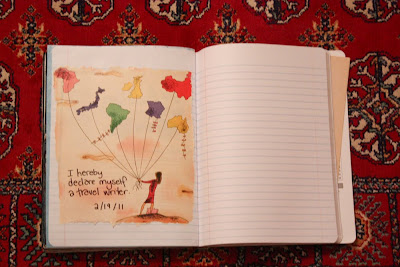 I hereby
declare myself
a travel writer.
2/19/11